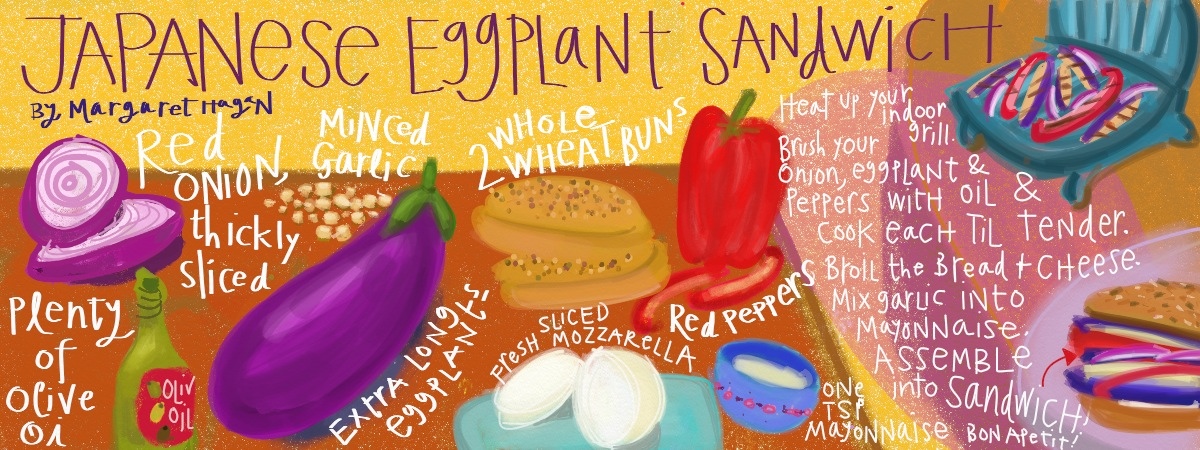 JAPANese EggPLanT SANdwicH
By Margaret HageN
Red
ONION,
thickly
sliced
MiNced
Garlic
2 WHOLe
WHEAT BUNs
Plenty
of
Olive
OIL
OLIV
OIL
EXTRA LONG
eggPLANT
SLICED
FResH MOZZARELLA
Red Peppers
ONe
TSP
MayoNNaise
Heat up your
indoor
grill.
Brush your
Onion, eggpLaNT &
Peppers with OIL &
COOK eacH TiL TeNDeR.
BROIL the Bread + CHeese.
Mix garlic INTO
MayoNNaise.
ASSEMBLe
into SaNdwicH,
BON APeTiT!